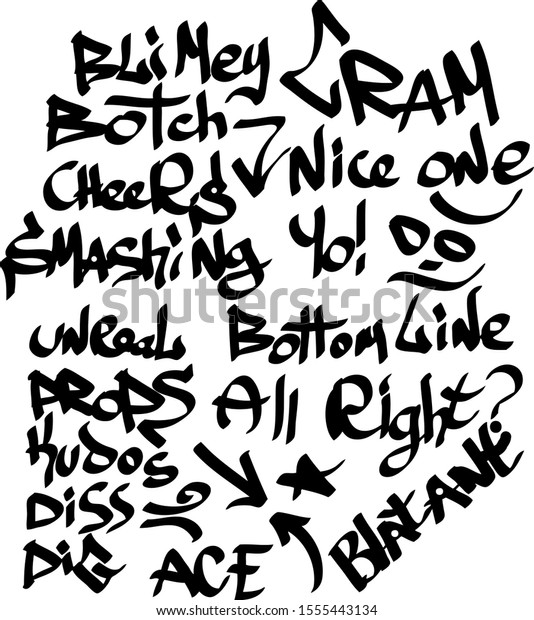 BLiMey
CRAM
Botch
CHeeRS
Nice one
SMASHiNg
Yo!
UNReaL
Bottom Line
PROPS
All Right?
KuDoS
DiSS
BlAtANt
DiG
ACE
shutterstock
shutterstock.com · 1555443134